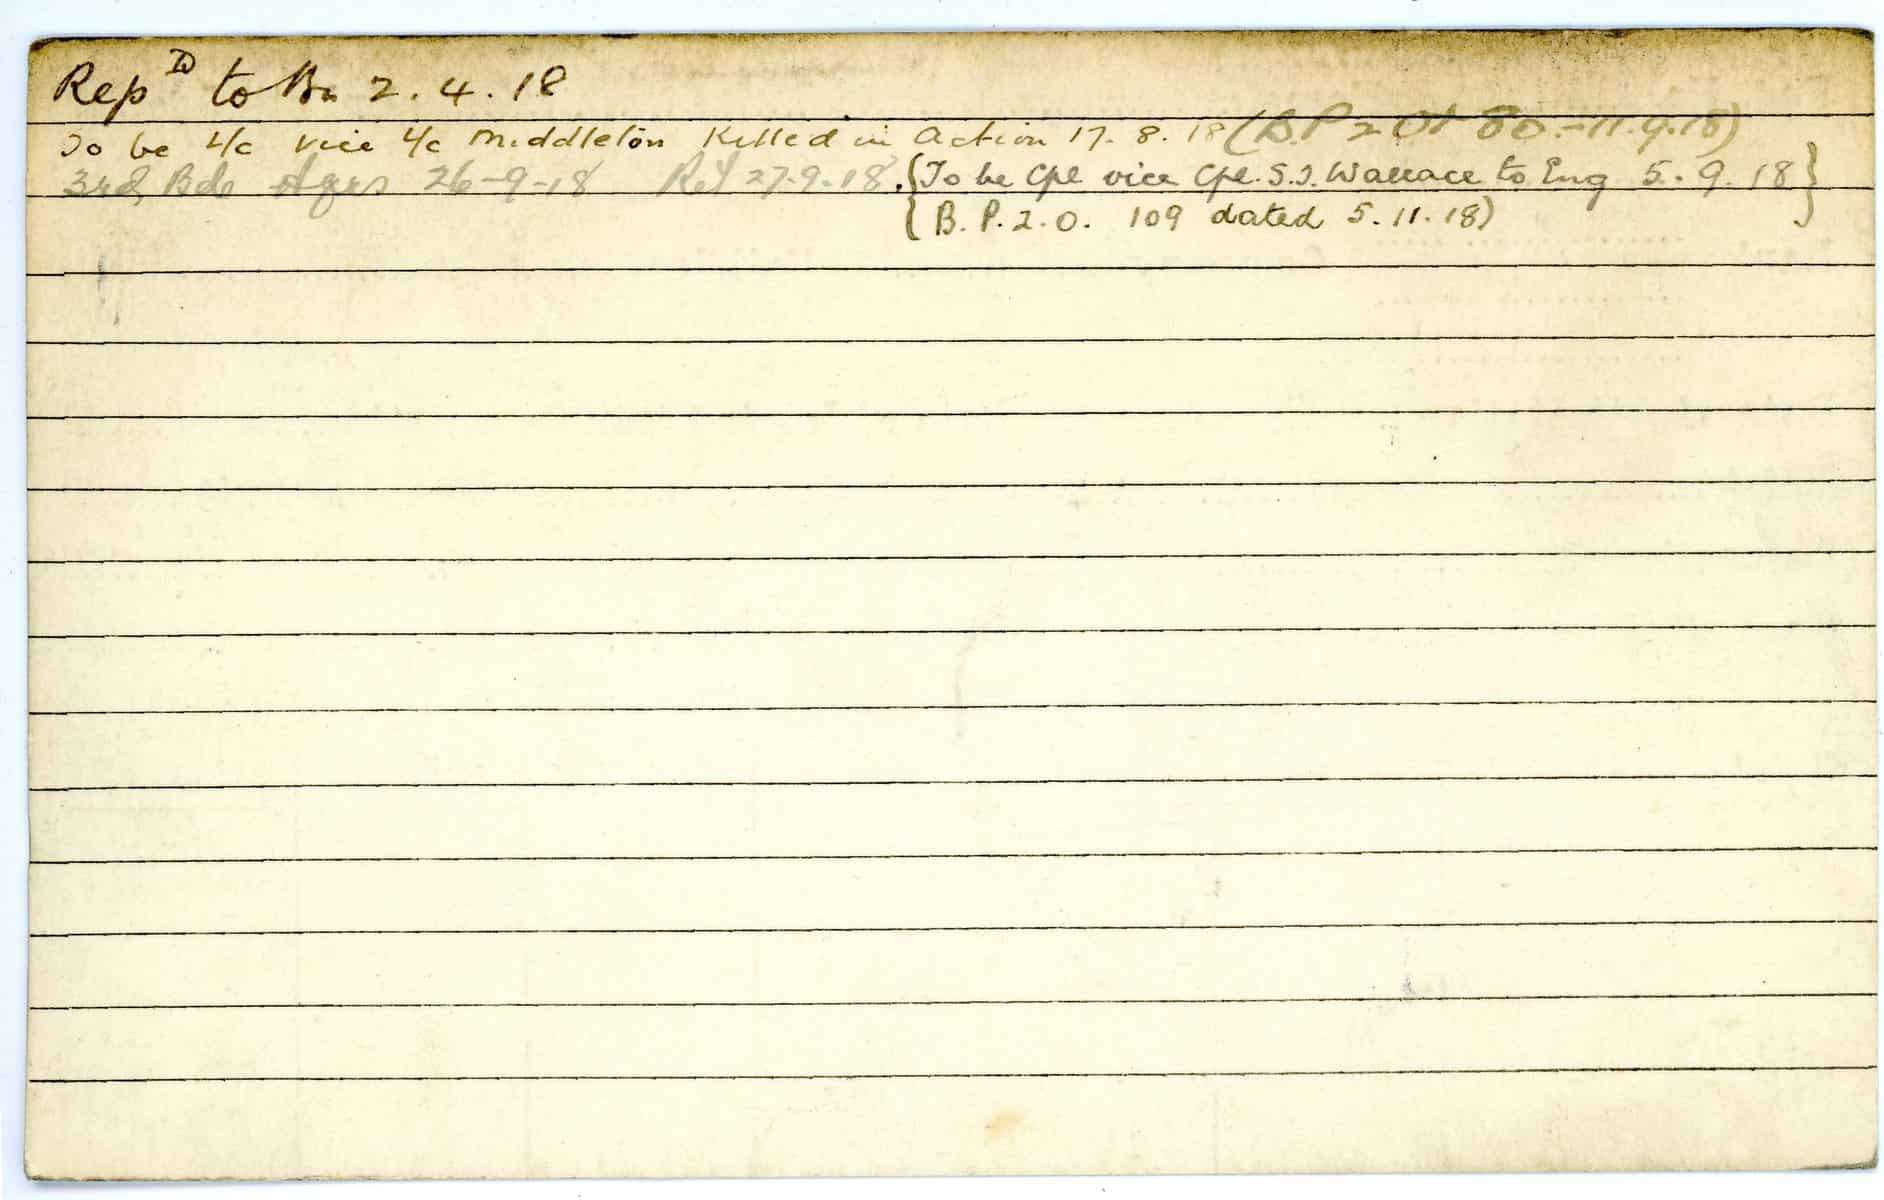 Rep D to Bn 2.4.18
To be L/c vice L/c Middleton Killed in Action 17.8.18 (B.P 2 Or 80.-11.9.18)
3rd Bde Hqrs 26-9-18 Ret 27.9.18. {To be Cpl vice Cpl. S.J. Wallace to Eng 5.9.18}
{B.P.2.O. 109 dated 5.11.18)